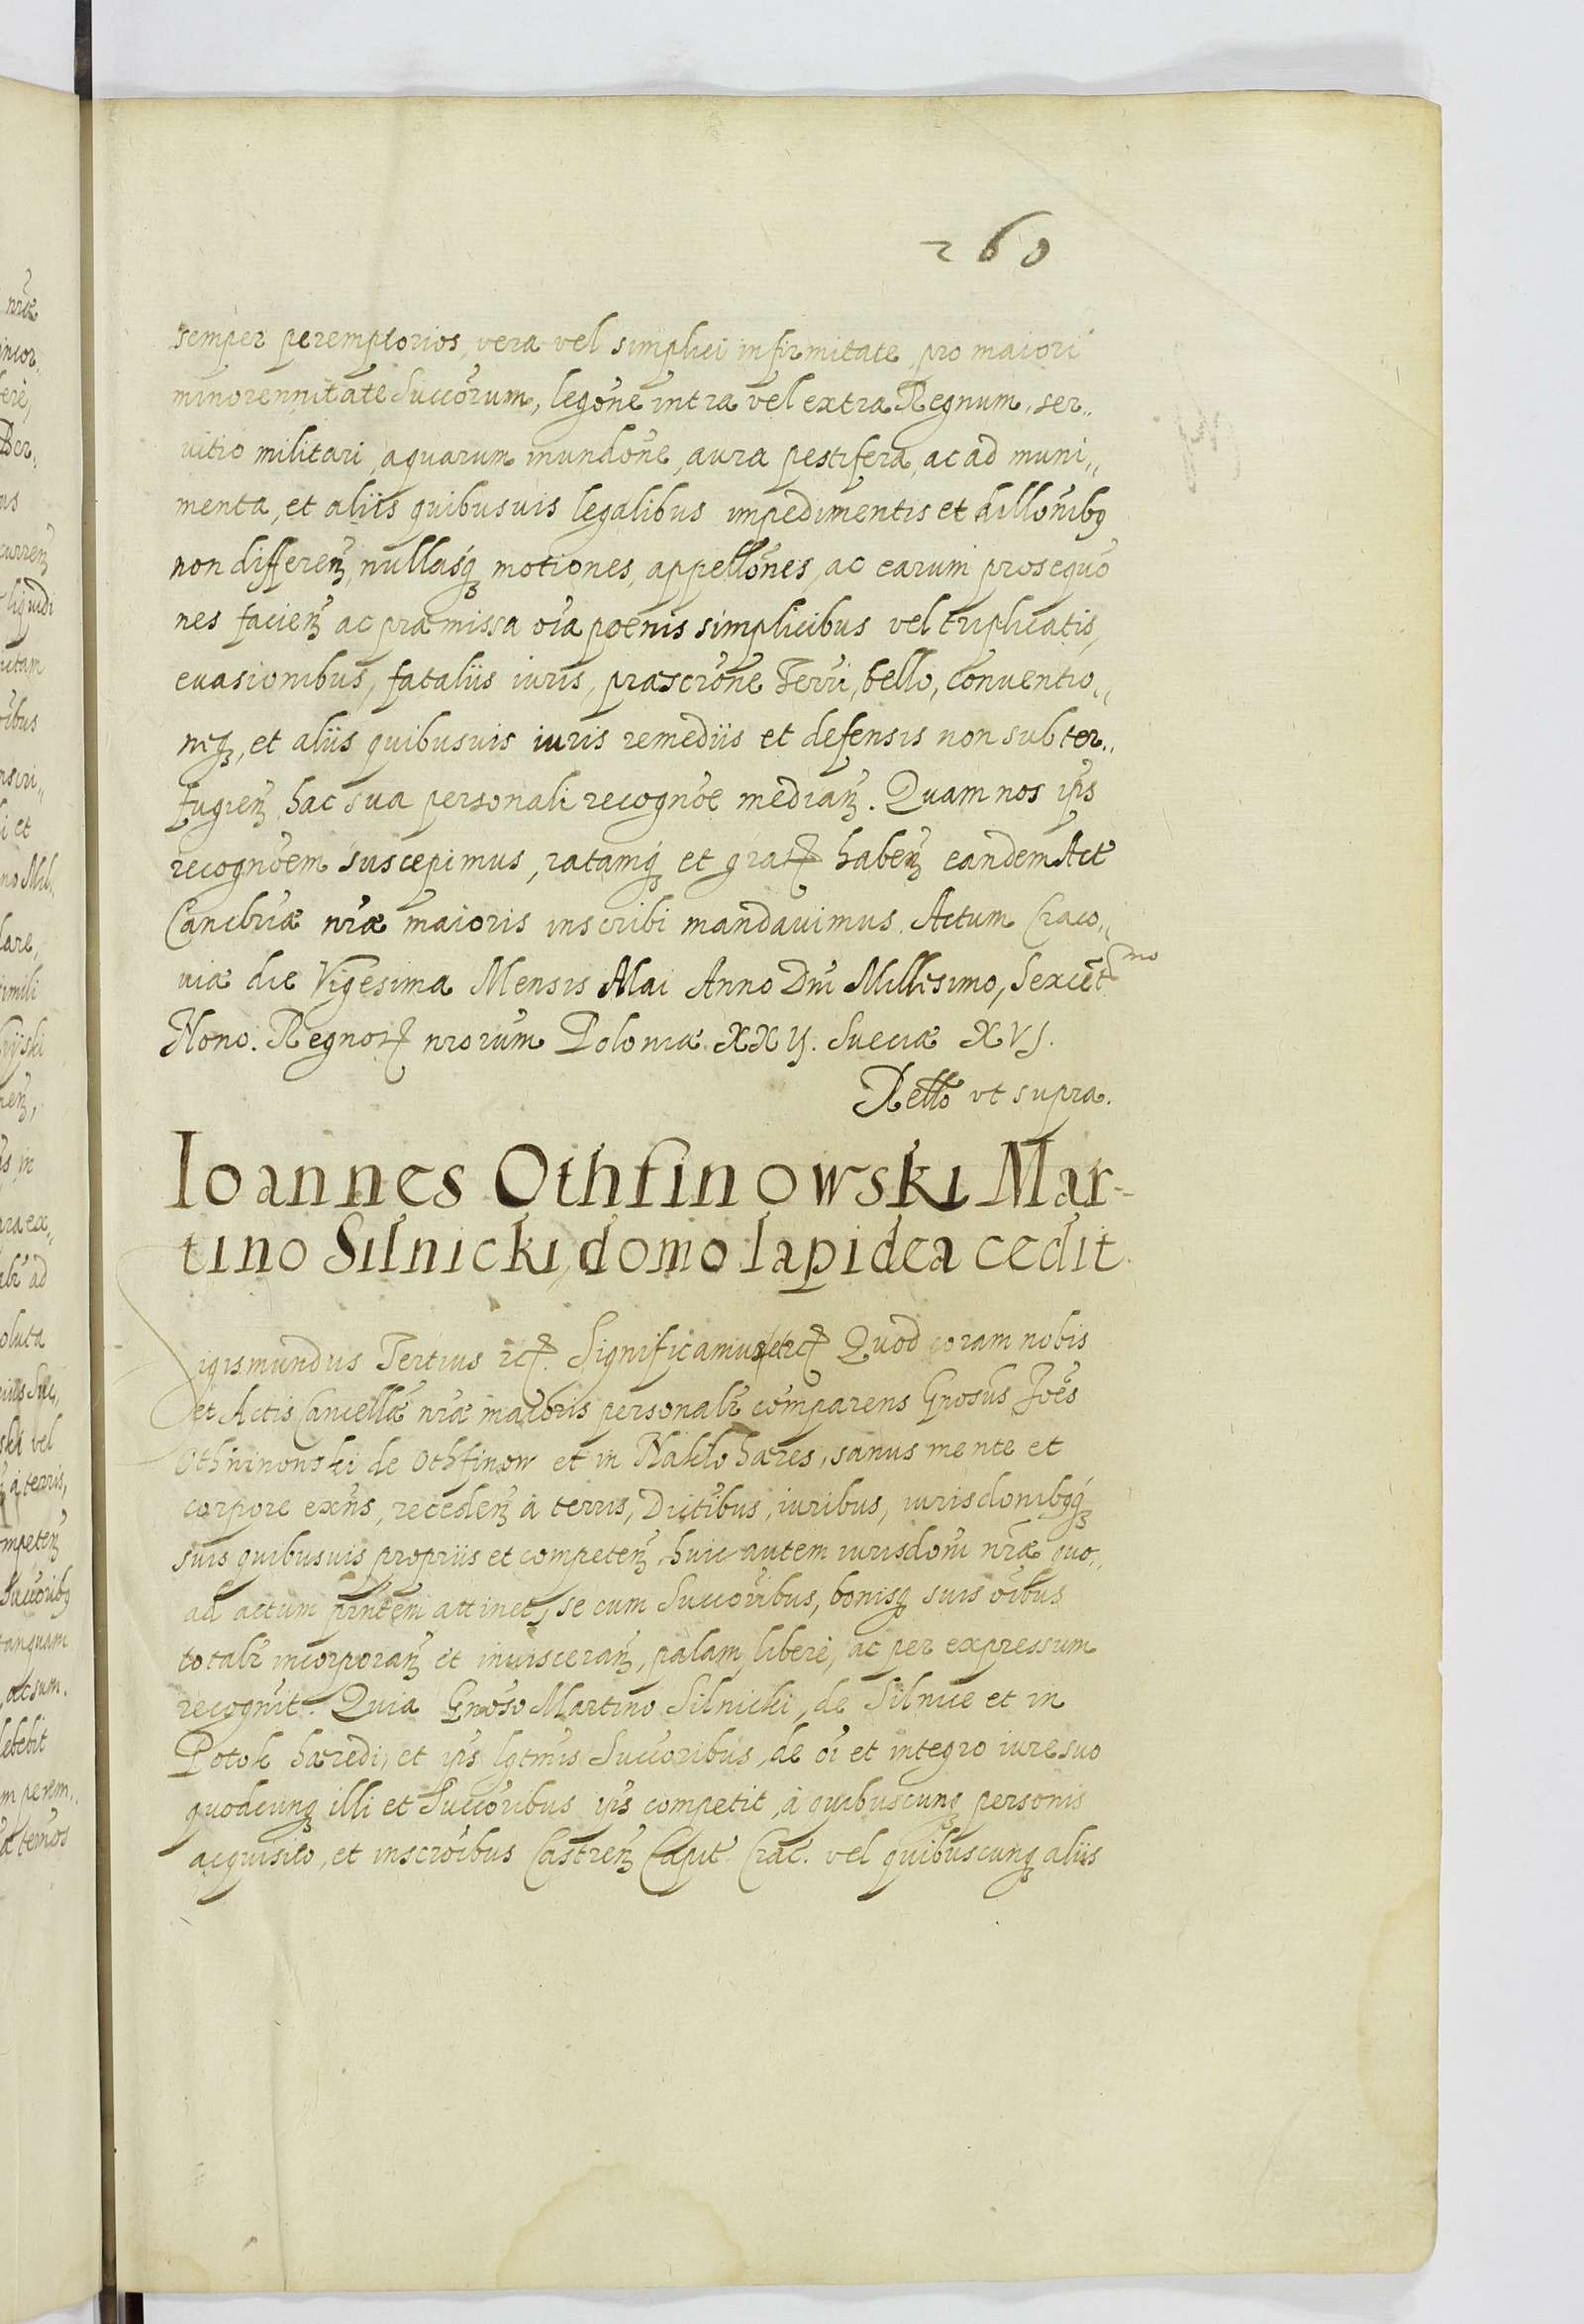 260
semper peremptorios, vera vel simplici infirmitate, pro maiori
minorennitate Succõrum, legõne intra vel extra Regnum, ser„
uitio militari, aquarum inundõne, aura pestifera, ac ad muni„
menta, et aliis quibusuis legalibus impedimentis et dillõnibꝫ
non differeñ, nullasqꝫ motiones, appellõnes, ac earum prosequõ
nes facieñ ac præmissa oĩa poenis simplicibus vel triplicatis,
euasionibus, fataliis iuris, præscrõne Terrĩ, bello, conuentio„
neqꝫ, et aliis quibusuis iuris remediis et defensis non subter„
fugieñ, hac sua personali recognõe mediañ. Quam nos ip̃s
recognõem suscepimus, ratamqꝫ et gratꝝ habeñ eandem Act
Cancℓriæ nr̃æ maioris inscribi mandauimus. Actum Craco„
uiæ die Vigesima Mensis Mai Anno Dñi Millesimo, Sexcẽtmo
Nono. Regnorꝝ nrõrum Poloniæ XXIJ. Sueciæ XVJ.
Rellõ vt supra.
Ioannes Othfinowski Mar-
tino Silnicki, domo lapidea cedit
Sigismundus Tertius ꝛcꝭ. Significamus etcꝭ Quod coram nobis
et Actis Cancellæ nr̃æ maioris personalr̃ comparens Gñosus Joẽs
Othfinowski de Othfinow et in Naklo hæres, sanus mente et
corpore exñs, recedeñ a terris, Districtĩbus, iuribus, iurisdonibꝫqꝫ
suis quibusuis propriis et competeñ, huic autem iurisdoni nr̃æ quo„
ad actum pñtem attinet, se cum Succõribus, bonisqꝫ suis oĩbus
totalr̃ incorporañ et inuisceran̄, palam, liberè, ac per expressum
recognuit. Quia Gñoso Martino Silnicki, de Silnice et in
Potok hæredi, et ip̃s lgtmis Succõribus, de oĩ et integro iure suo
quodcunqꝫ illi et Succõribus ip̃s competit, à quibuscunqꝫ personis
acquisito, et inscrõibus Castreñ Capit Crac. vel quibuscunqꝫ aliis